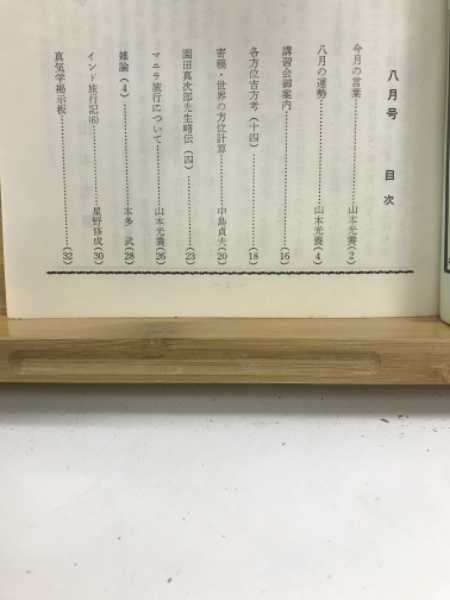 八月号　目次
今月の言葉…………山本光養(2)
八月の運勢…………山本光養(4)
講習会御案内…………(16)
各方位吉方考(十四)…………(18)
寄稿・世界の方位計算…………中島貞夫(20)
園田真次郎先生略伝(四)…………(23)
マニラ旅行について…………山本光養(26)
雑論(4)…………本多　武(28)
インド旅行記(6)…………星野修成(30)
真気学掲示板…………(32)